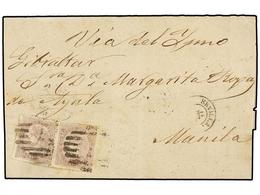 Via del Ymno
Gibraltar
Sra Da Margarita Roxas
de Ayala
Manila